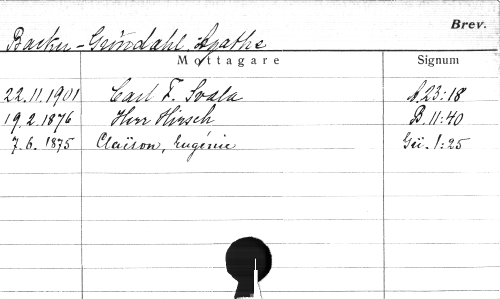 Brev.
Backer-Gröndahl, Agathe
Mottagare Signum
22.11.1901 Carl F. Svala S. 23:18
19.2.1876 Herr Hirsch B. 11:40
7.6.1875 Claëson, Eugénie Gü. 1:25